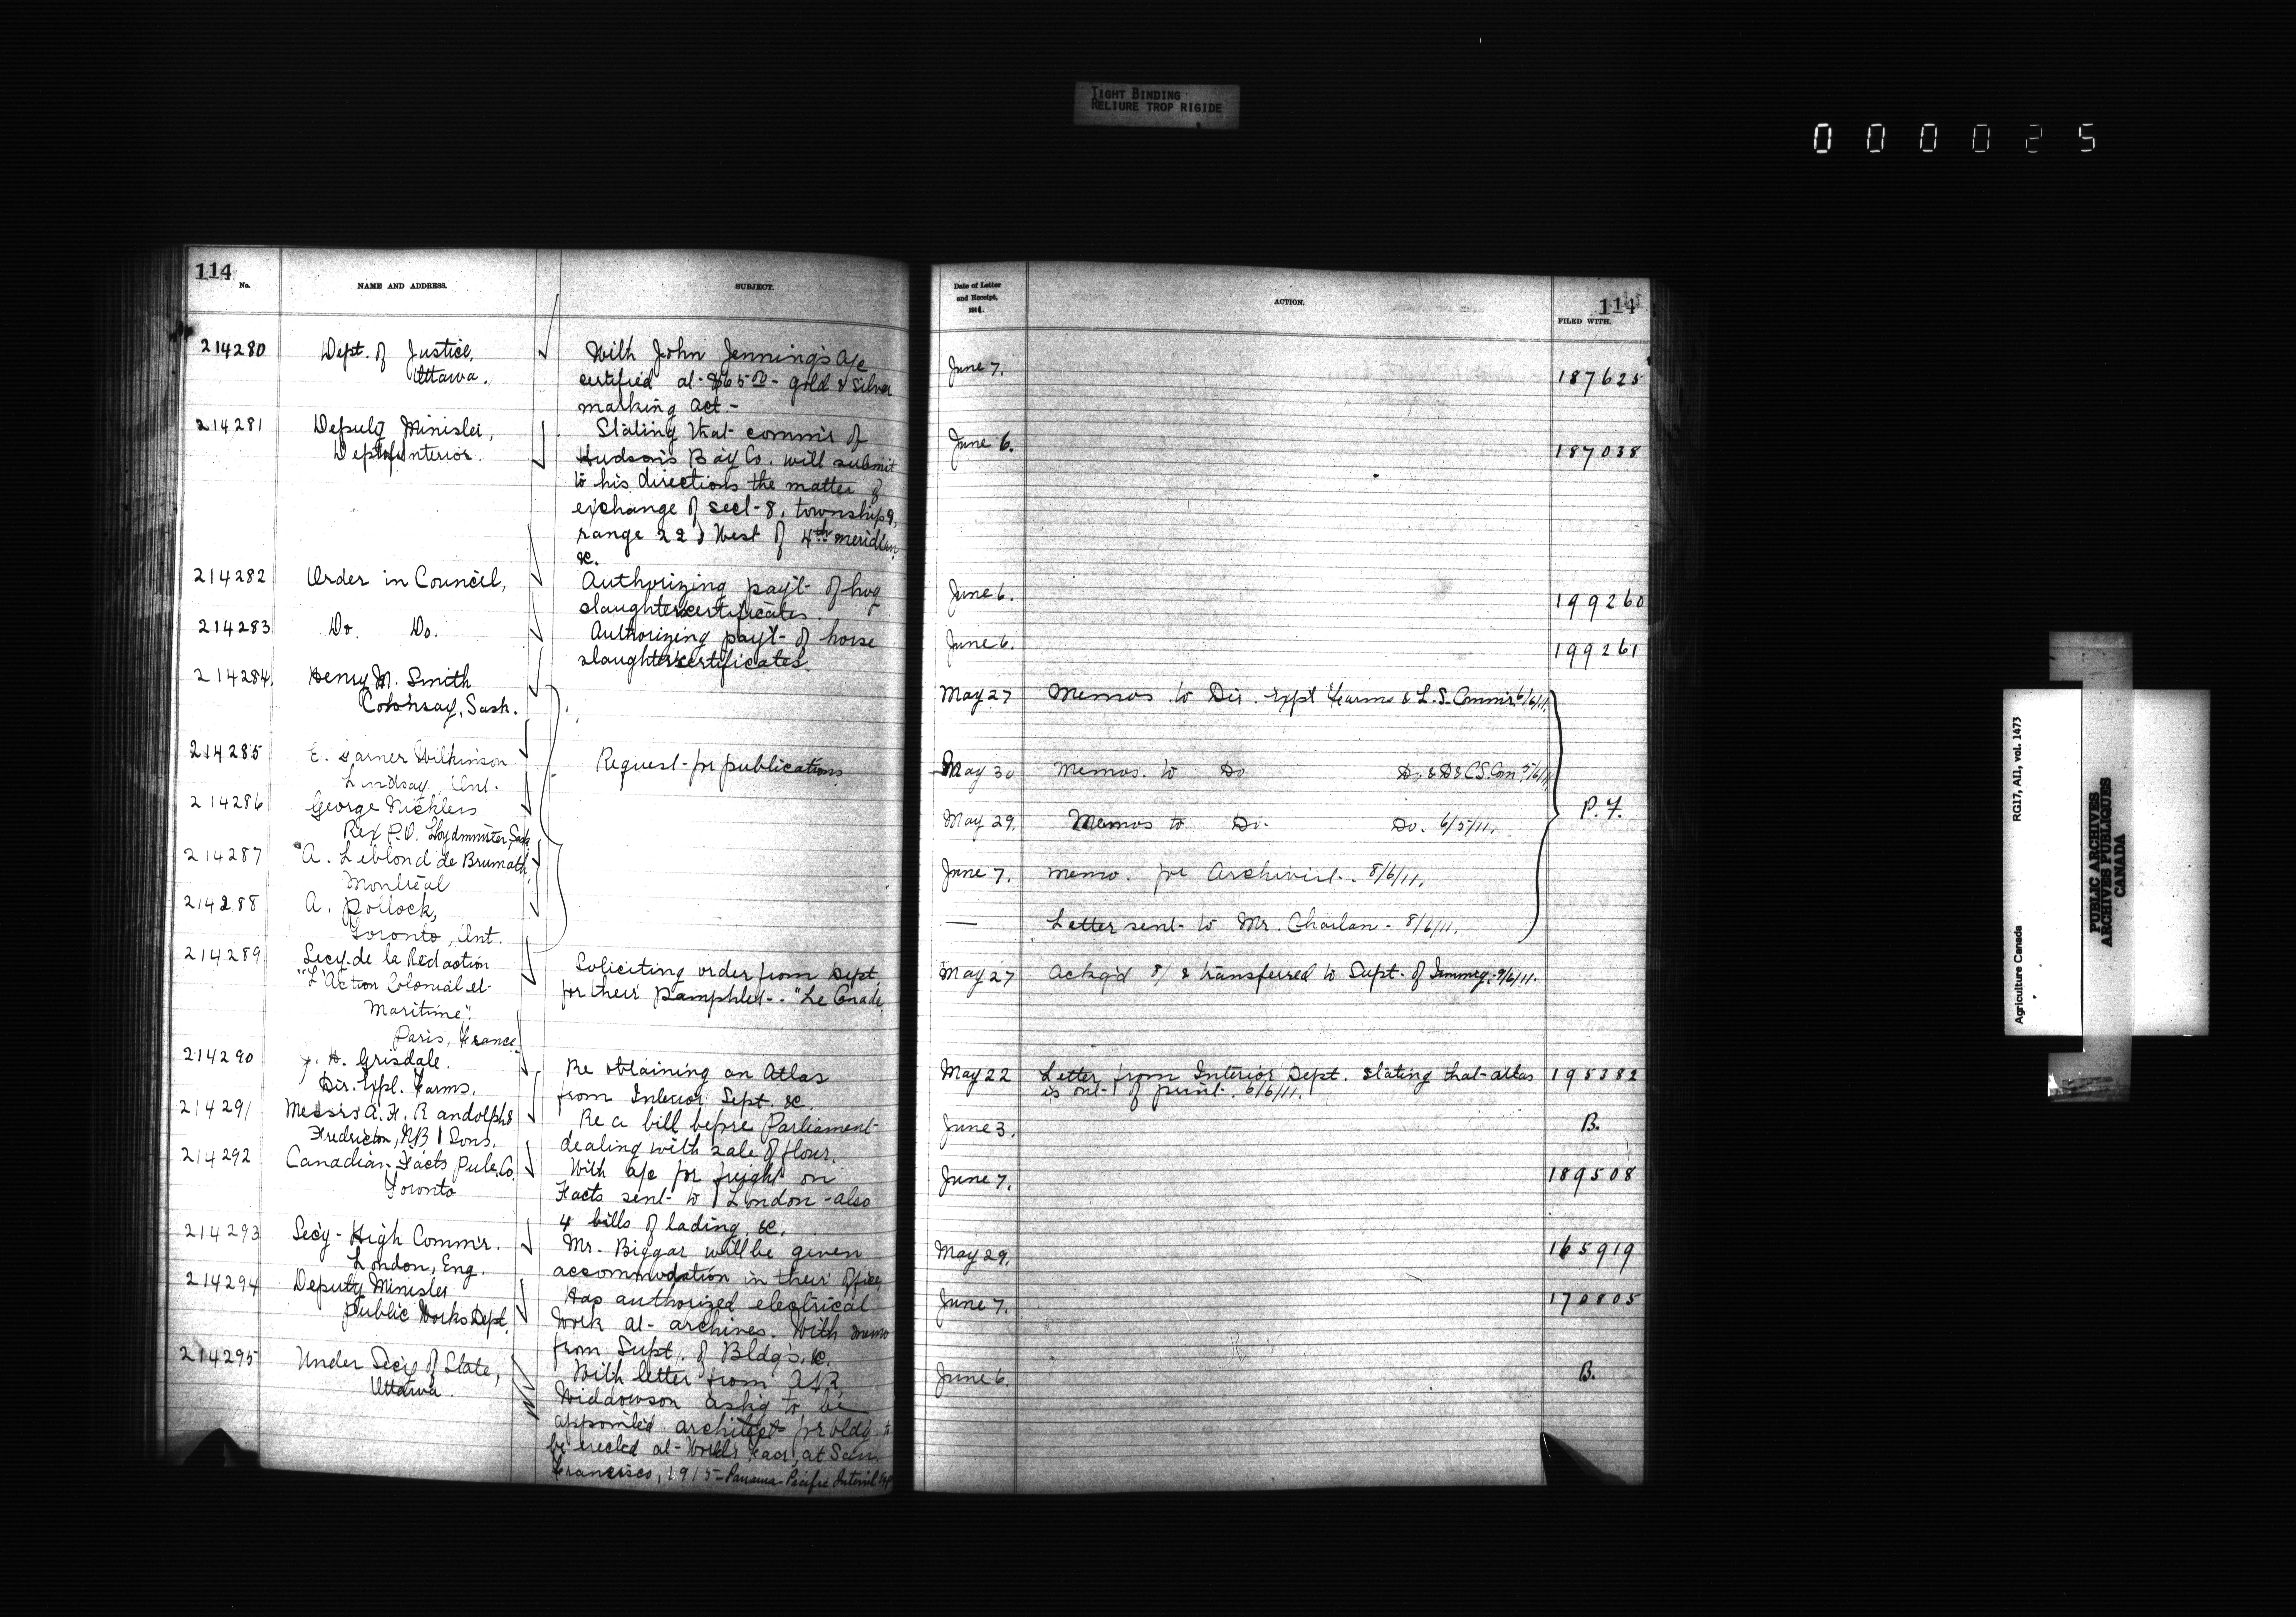 TIGHT BINDING
RELIURE TROP RIGIDE
000025
114
No.
NAME AND ADDRESS.
SUBJECT.
214280
Dept. of Justice,
Ottawa.
With John Jennings a/c
certified at $65.00 - gold & silver
marking act.-
214281
Deputy Minister,
Dept of Interior.
Stating that commr of
Hudson's Bay Co. will submit
to his directions the matter of
exchange of sect-8, township 9,
range 22, West of 4th meridian
&c.
214282
Order in Council,
Authorizing pay't of hog
slaughter certificates.
214283
Do. Do.
Authorizing pay't of horse
slaughter certificates.
214284
Henry M. Smith
Colonsay, Sask.
214285
E. Garner Wilkinson
Lindsay, Ont.
Request for publications
214286
George Nickless
Rex P.O. Lloydminster, Sask
214287
A. Leblond de Brumath,
Montreal
214288
A. Pollock,
Toronto, Ont.
214289
Secy. de la Redaction
"L'Action Colonial et
Maritime",
Paris, France.
Soliciting order from Dept
for their pamphlet - "Le Canada
214290
J. H. Grisdale.
Dir. Expl. Farms.
Re obtaining an Atlas
from Interior Dept. &c.
214291
Messrs A. F. Randolph &
Fredricton, NB Sons.
Re a bill before Parliament
dealing with sale of flour.
214292
Canadian Facts Pub. Co.
Toronto
With a/c for freight on
Facts sent to London - also
4 bills of lading, &c.
214293
Secy - High Commr.
London, Eng.
Mr. Biggar will be given
accommodation in their office
214294
Deputy Minister
Public Works Dept.
Has authorized electrical
work at archives. With memo
from Supt. of Bldg's. &c.
214295
Under Secy of State,
Ottawa.
With letter from
Widdowson ask'g to be
appointed architect for bldg to
be erected at World's Fair, at San
Francisco, 1915 - Panama Pacific
Date of Letter
and Receipt,
1911.
ACTION.
114
FILED WITH.
June 7.
187625
June 6.
187038
June 6.
199260
June 6.
199261
May 27
Memos to Dir. Expl Farms & L.S. Commr. 6/6/11.
May 30
Memos. to Do Do.
May 29.
Memos to Do. Do. 6/5/11.
P.F.
June 7.
memo. for Archivist. 8/6/11.
—
Letter sent to Mr. Charlan - 8/6/11.
May 27
Ackg'd 8/ & transferred to Supt. of Immig. 9/6/11.
May 22
Letter from Interior Dept. stating that atlas
is out of print. 6/6/11.
195382
June 3.
B.
June 7.
189508
May 29.
165919
June 7.
170805
June 6.
B.
Agriculture Canada RG17, AII, vol. 1473
PUBLIC ARCHIVES
ARCHIVES PUBLIQUES
CANADA